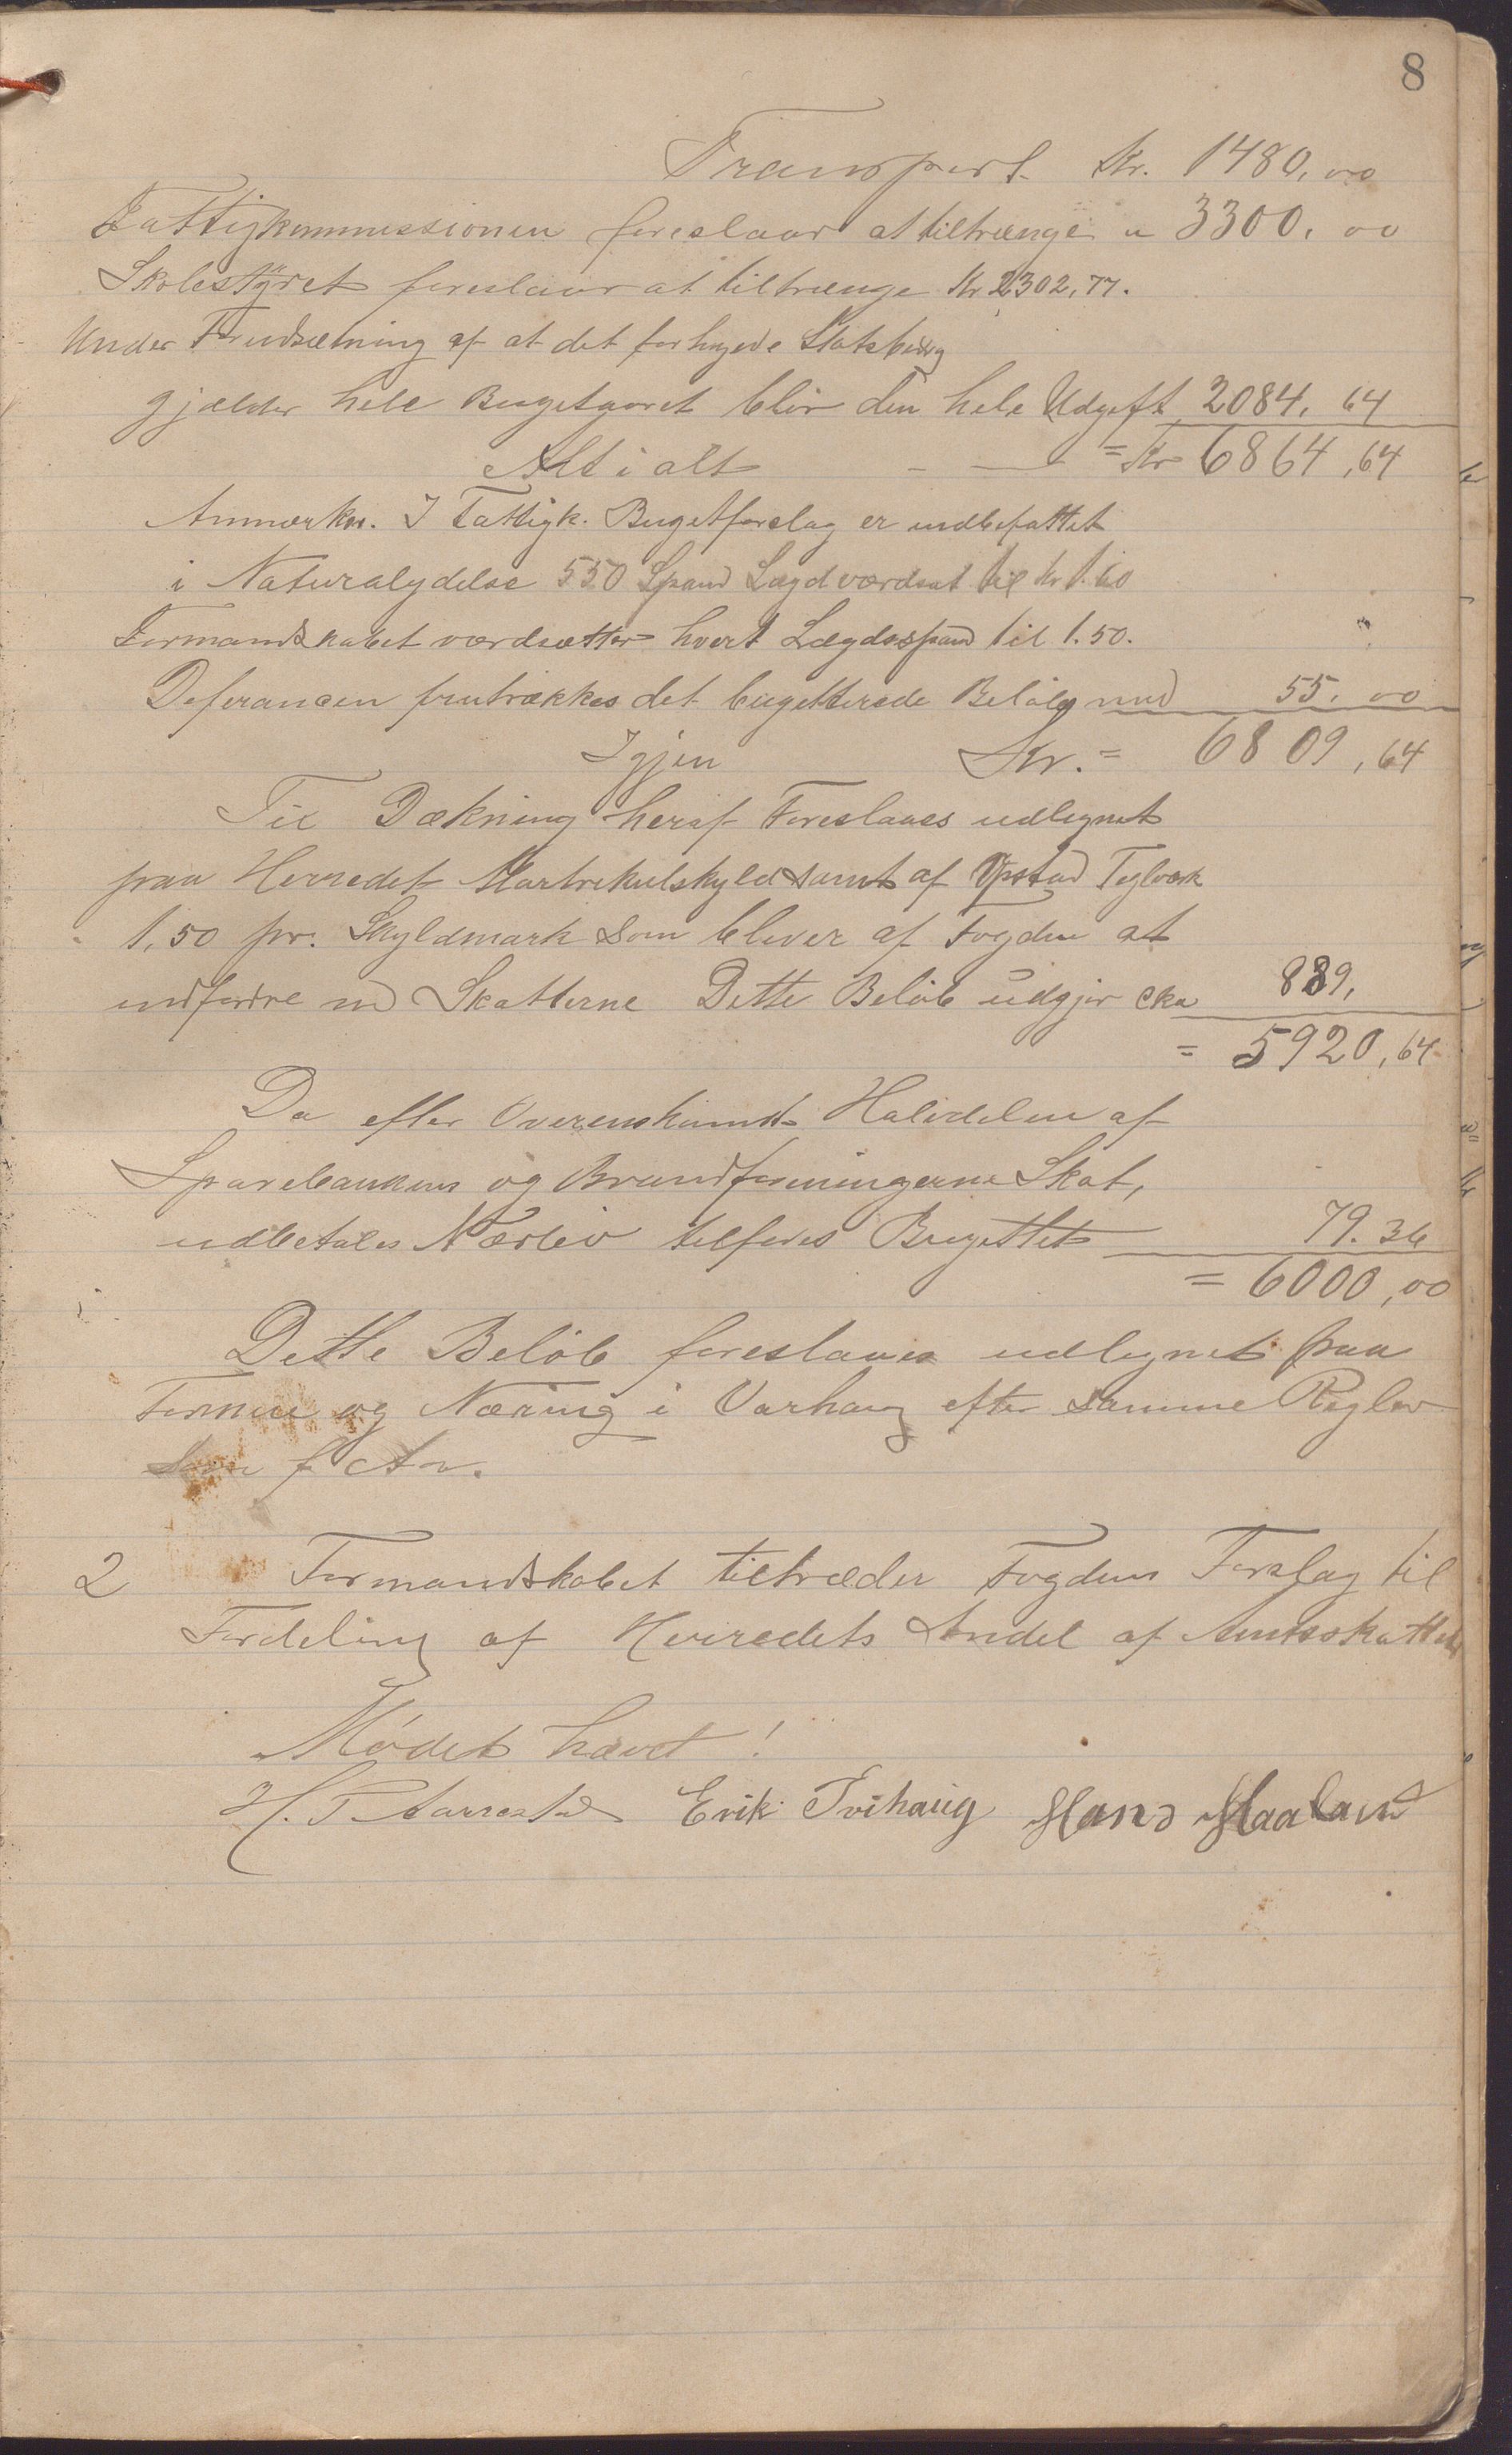 8
Transport Kr. 1480,00
Fattigkommissionen foreslaar at tiltrænge " 3300,00
Skolestyret foreslaar at tiltrænge Kr 2302,77.
Under Forudsætning af at det forhøyede Statsbidrag
gjælder hele Bugetaaret blir den hele Udgift 2084,64
Alt i alt - — = Kr 6864,64
Anmærkn. I Fattigk. Bugetforslag er indbefattet
i Naturalydelse 550 Spand Lægd værdsat til Kr 1.60
Formandskabet værdsætter hvert Lægdsspand til 1.50.
Deferancen fratrækkes det bugetterede Beløb med 55,00
Igjen Kr. = 6809,64
Til Dækning heraf Foreslaaes udlignet
paa Herredet Martrikulskyld samt af Opstad Teglværk
1,50 pr. Skyldmark som bliver af Fogden at
indfordre m Skatterne Dette Beløb udgjør cka 889,
= 5920,64
Da efter Overenskomst Halvdelen af
Sparebanken og Brandforeningerne Skat,
udbetales Nærbø tilføres Bugettet 79.36
= 6000,00
Dette Beløb foreslaaes udlignet paa
Formue og Næring i Varhaug efter samme Regler
som f Aar.
2 Formandskabet tiltræder Fogdens Forslag til
Fordeling af Herredets Andel af Amtsskatten
Mødet hævet!
H. T. Aarrestad Erik Tvihaug Hans Haaland